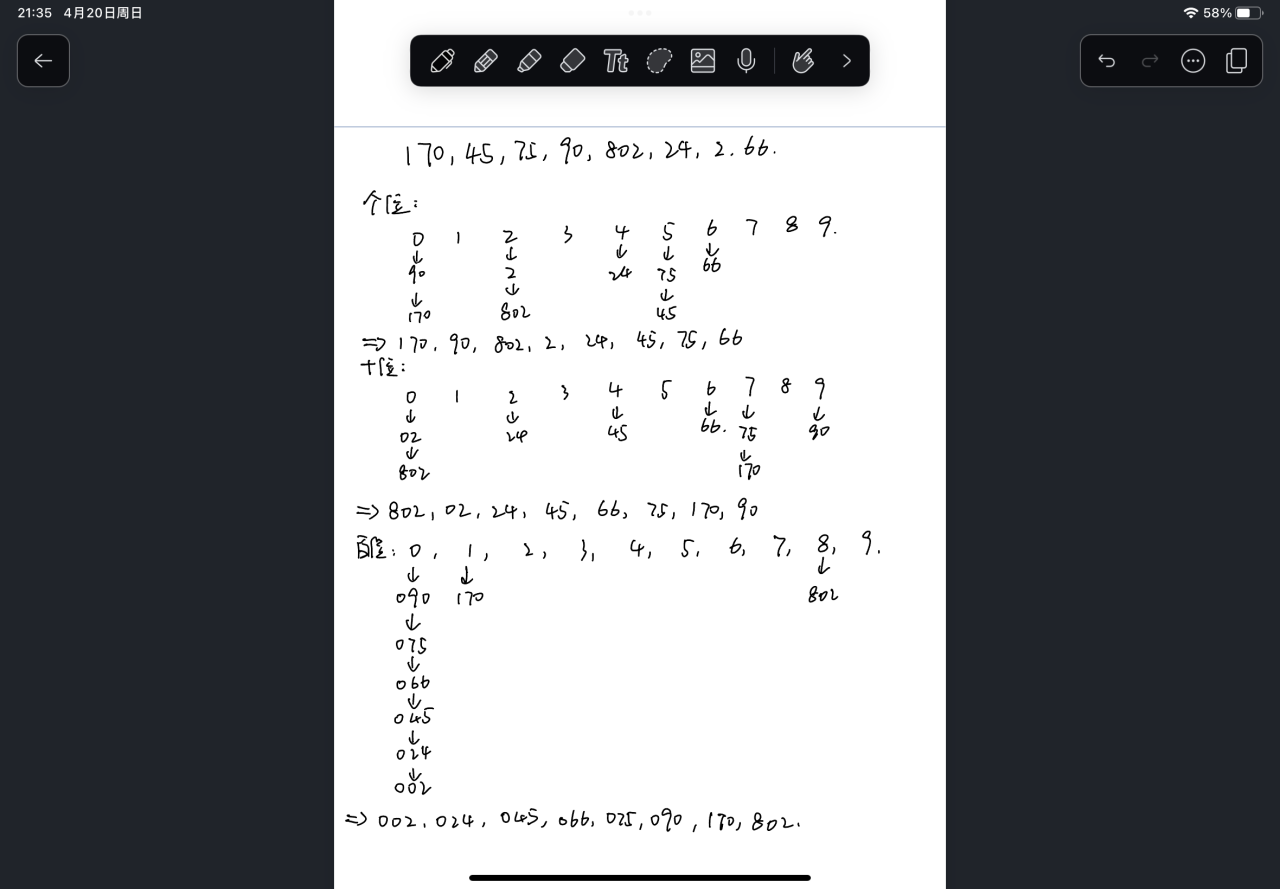 21:35 4月20日周日
58%
Tt
170, 45, 75, 90, 802, 24, 2. 66.
个位:
0 1 2 3 4 5 6 7 8 9.
↓ ↓ ↓ ↓ ↓
90 2 24 75 66
↓ ↓ ↓
170 802 45
=> 170, 90, 802, 2, 24, 45, 75, 66
十位:
0 1 2 3 4 5 6 7 8 9
↓ ↓ ↓ ↓ ↓ ↓
02 24 45 66. 75 90
↓ ↓
802 170
=> 802, 02, 24, 45, 66, 75, 170, 90
百位: 0, 1, 2, 3, 4, 5, 6, 7, 8, 9.
↓ ↓ ↓
090 170 802
↓
075
↓
066
↓
045
↓
024
↓
002
=> 002, 024, 045, 066, 075, 090, 170, 802.